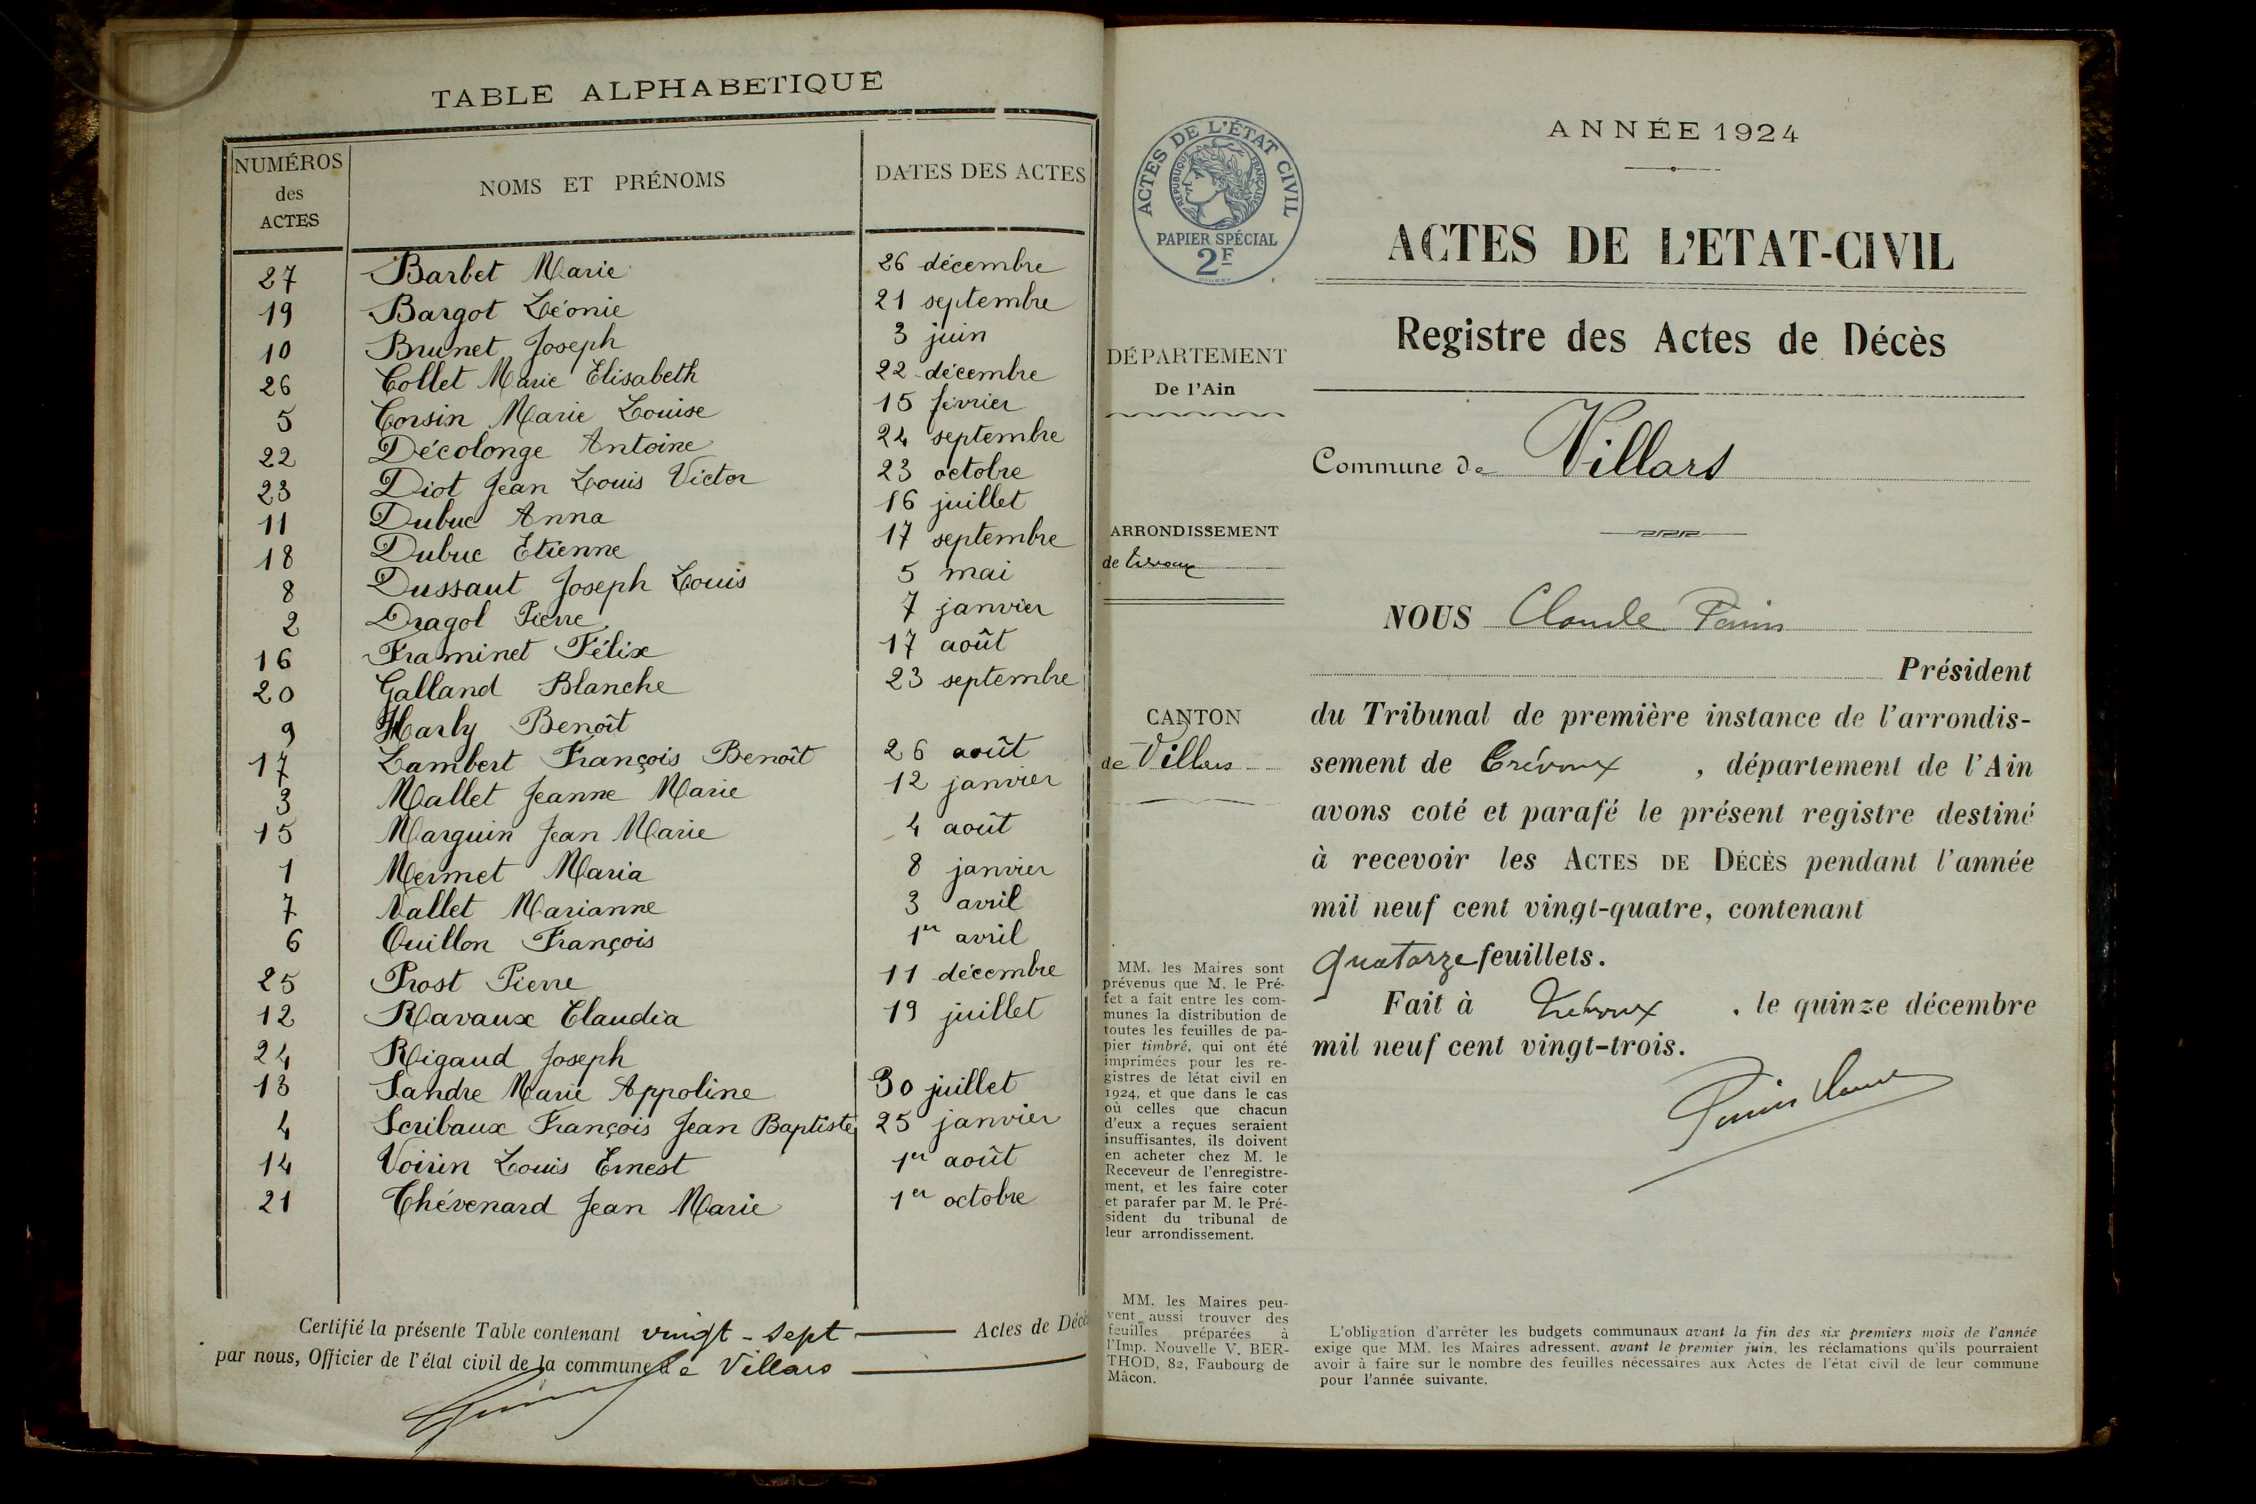 TABLE ALPHABETIQUE
NUMÉROS des ACTES
NOMS ET PRÉNOMS
DATES DES ACTES
27 Barbet Marie 26 décembre
19 Bargot Léonie 21 septembre
10 Brunet Joseph 3 juin
26 Collet Marie Elisabeth 22 décembre
5 Corsin Marie Louise 15 février
22 Décolonge Antoine 24 septembre
23 Diot Jean Louis Victor 23 octobre
11 Dubuc Anna 16 juillet
18 Dubuc Etienne 17 septembre
8 Dussaut Joseph Louis 5 mai
2 Dragol Pierre 7 janvier
16 Framinet Félix 17 août
20 Galland Blanche 23 septembre
9 Harly Benoît
17 Lambert François Benoît 26 août
3 Mallet Jeanne Marie 12 janvier
15 Marguin Jean Marie 4 août
1 Mermet Maria 8 janvier
7 Nallet Marianne 3 avril
6 Ouillon François 1er avril
25 Prost Pierre 11 décembre
12 Ravaux Claudia 19 juillet
24 Rigaud Joseph
13 Sandre Marie Appoline 30 juillet
4 Scribaux François Jean Baptiste 25 janvier
14 Voisin Louis Ernest 1er août
21 Chévenard Jean Marie 1er octobre
Certifié la présente Table contenant vingt-sept Actes de Décè
par nous, Officier de l'état civil de la commune de Villars
ACTES DE L'ÉTAT CIVIL
RÉPUBLIQUE FRANÇAISE
PAPIER SPÉCIAL
2F
DÉPARTEMENT
De l'Ain
ARRONDISSEMENT
de Trévoux
CANTON
de Villars
MM. les Maires sont
prévenus que M. le Pré-
fet a fait entre les com-
munes la distribution de
toutes les feuilles de pa-
pier timbré, qui ont été
imprimées pour les re-
gistres de létat civil en
1924, et que dans le cas
où celles que chacun
d'eux a reçues seraient
insuffisantes, ils doivent
en acheter chez M. le
Receveur de l'enregistre-
ment, et les faire coter
et parafer par M. le Pré-
sident du tribunal de
leur arrondissement.
MM. les Maires peu-
vent aussi trouver des
feuilles préparées à
l'Imp. Nouvelle V. BER-
THOD, 82, Faubourg de
Mâcon.
ANNÉE 1924
ACTES DE L'ETAT-CIVIL
Registre des Actes de Décès
Commune de Villars
NOUS Claude Perrin
Président
du Tribunal de première instance de l'arrondis-
sement de Trévoux, département de l'Ain
avons coté et parafé le présent registre destiné
à recevoir les ACTES DE DÉCÈS pendant l'année
mil neuf cent vingt-quatre, contenant
quatorze feuillets.
Fait à Trévoux, le quinze décembre
mil neuf cent vingt-trois.
L'obligation d'arrêter les budgets communaux avant la fin des six premiers mois de l'année
exige que MM. les Maires adressent, avant le premier juin, les réclamations qu'ils pourraient
avoir à faire sur le nombre des feuilles nécessaires aux Actes de l'état civil de leur commune
pour l'année suivante.